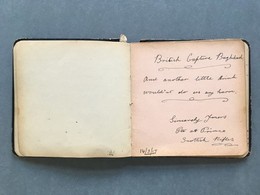 British Captive Baghdad
And another little drink
wouldn't do us any harm.
Sincerely Yours
Pte A
Scottish Rifles